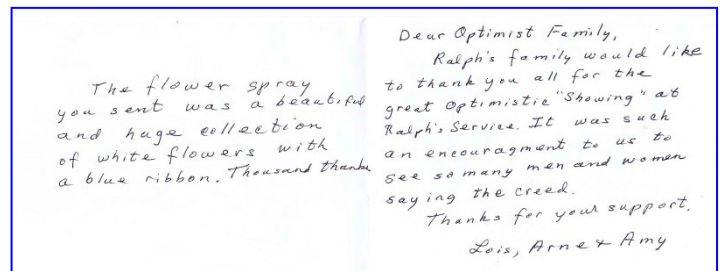 The flower spray
you sent was a beautiful
and huge collection
of white flowers with
a blue ribbon. Thousand thanks
Dear Optimist Family,
Ralph's family would like
to thank you all for the
great optimistic "Showing" at
Ralph's Service. It was such
an encouragment to us to
see so many men and women
saying the creed.
Thanks for your support.
Lois, Arne & Amy